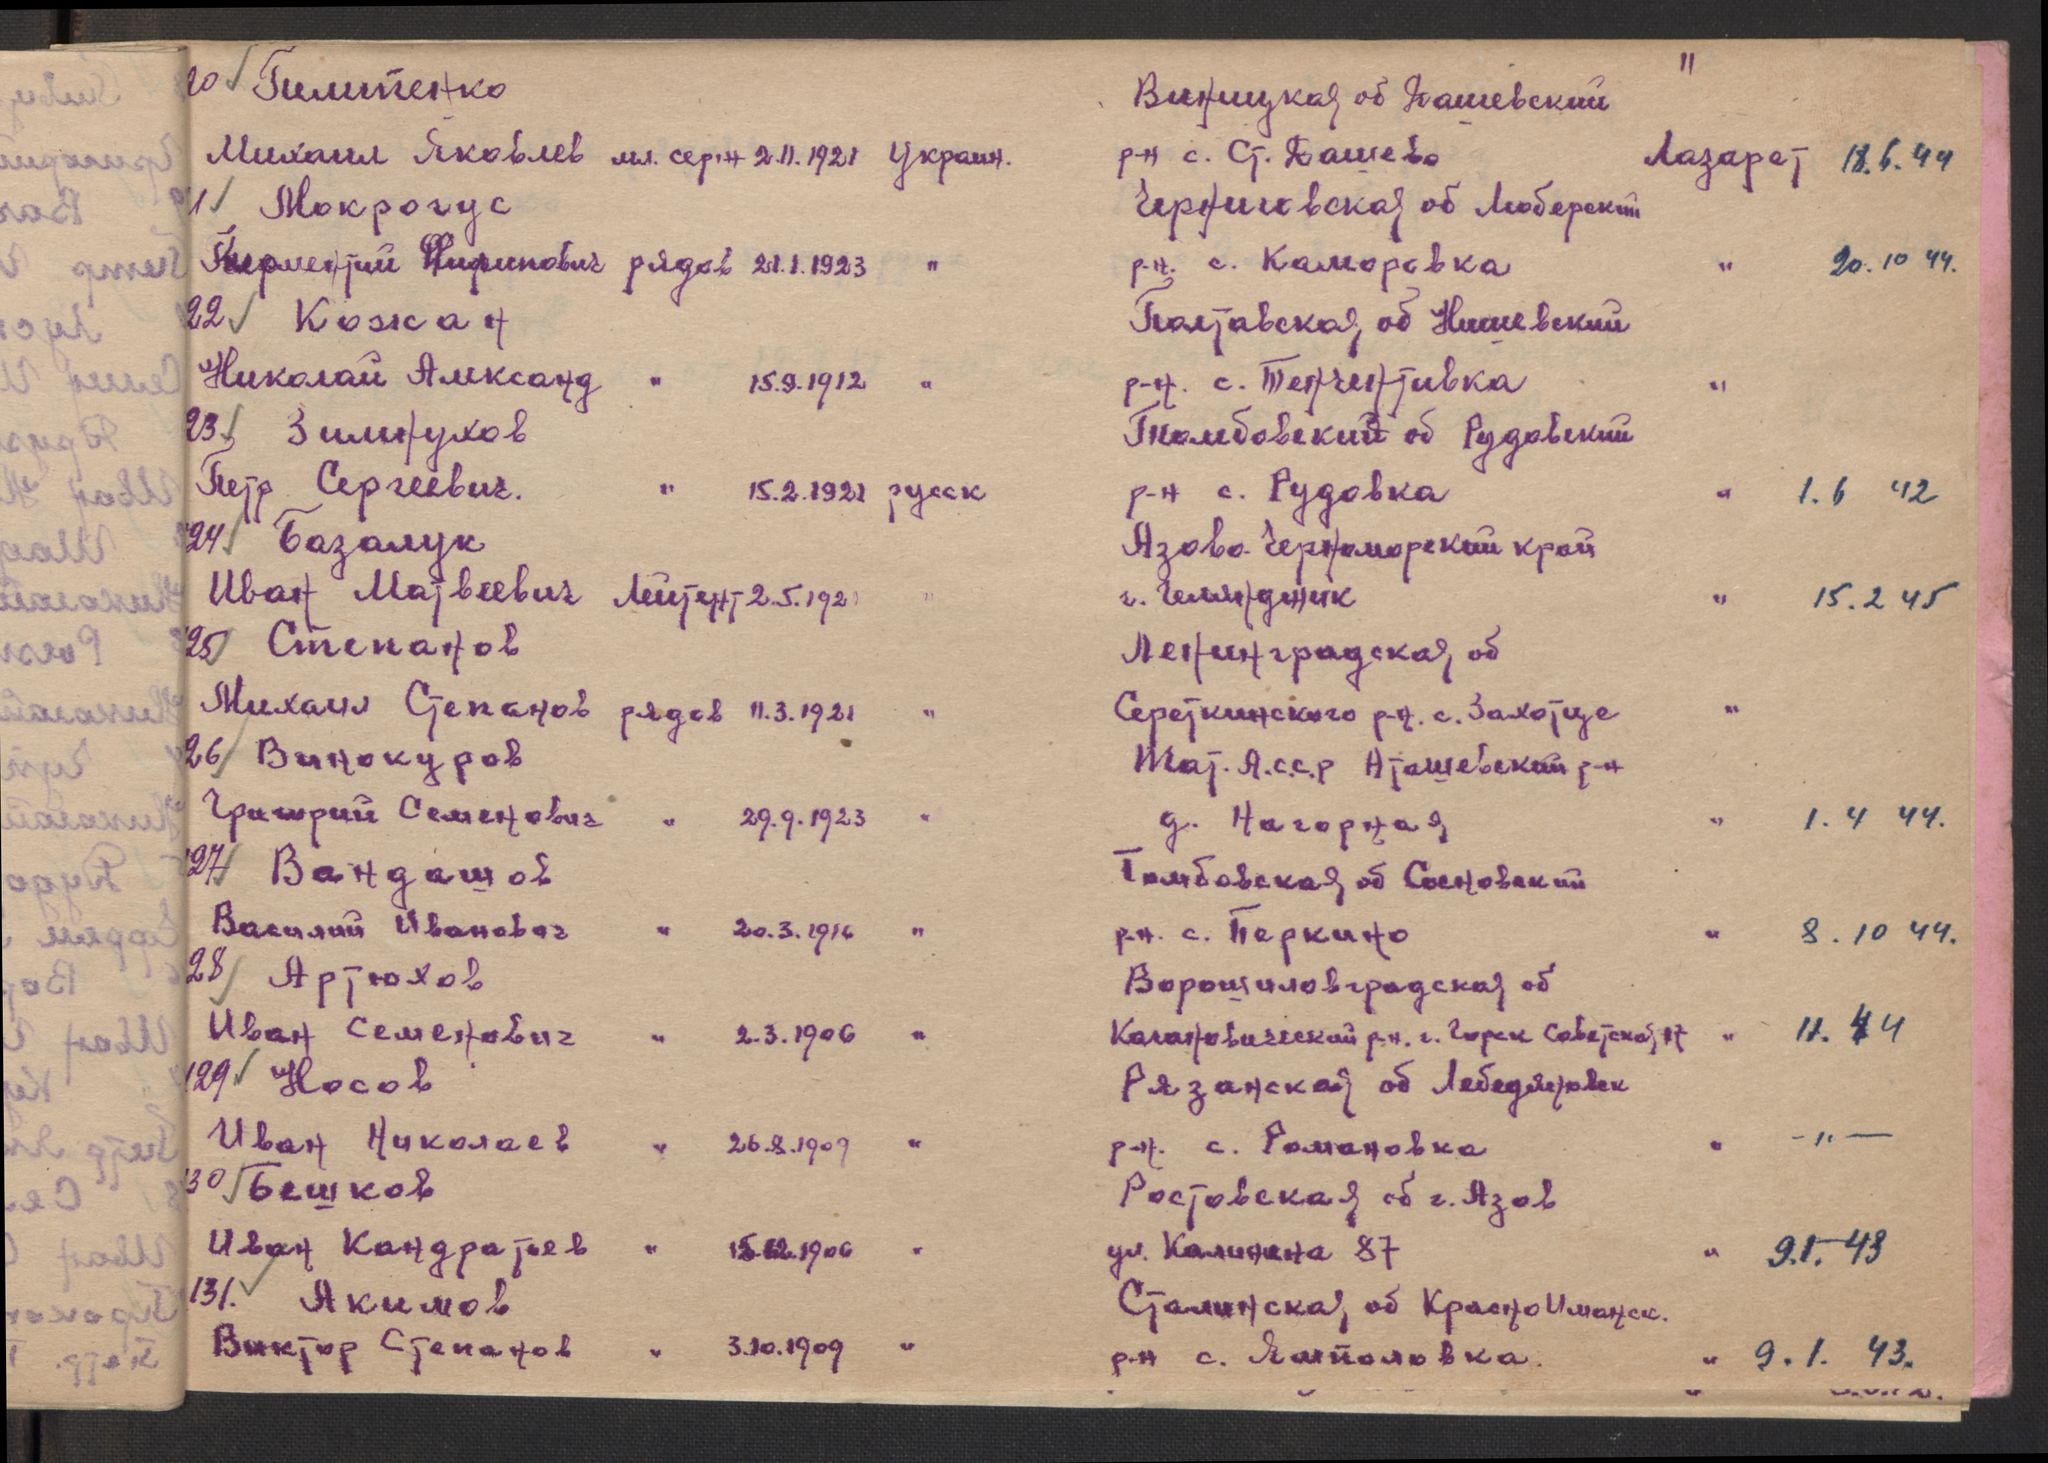 20 Пилипенко Виницкая об Дашевский "
Михаил Яковлев мл. серж 2.11.1921 Украин. р-н с. Ст. Дашево Лазарет 18.6.44
21 Мокрогус Черниговская об Люберский
Терментий рядов 21.1.1923 " р-н. с. Каморовка " 20.10 44.
22 Кожан Полтавская об Нишевский
Николай Александ " 15.9.1912 " р-н. с. "
23 Зимнухов Тамбовский об Рудовский
Петр Сергеевич. " 15.2.1921 русск р-н с. Рудовка " 1.6 42
124 Базалук Азово-Черноморский край
Иван Матвеевич Лейтент 2.5.1921 " г. Гелянджик " 15.2 45
125 Степанов Ленинградская об
Михаил Степанов рядов 11.3.1921 " Середкинского р-н. с. Захотце "
26 Винокуров Тат. А.с.с.р Аташевский р-н
Григорий Семенович " 29.9.1923 " д. Нагорная " 1.4 44.
127 Вандашов Тамбовская об Сосновский
Василий Иванович " 20.3.1916 " р-н. с. Перкино " 8.10 44.
28 Артюхов Ворошиловградская об
Иван Семенович " 2.3.1906 " Кагановический р-н. г. Горск Советская 17 " 11. 44
129 Носов Рязанская об Лебедяновск
Иван Николаев " 26.8.1909 " р-н. с. Романовка " -"-
130 Бешков Ростовская об г. Азов
Иван Кандратьев " 15.12.1906 " ул. Калинина 87 " 9.1.43
131. Якимов Сталинская об КрасноИманск.
Виктор Степанов " 3.10.1909 " р-н с. Ямполовка. " 9.1. 43.